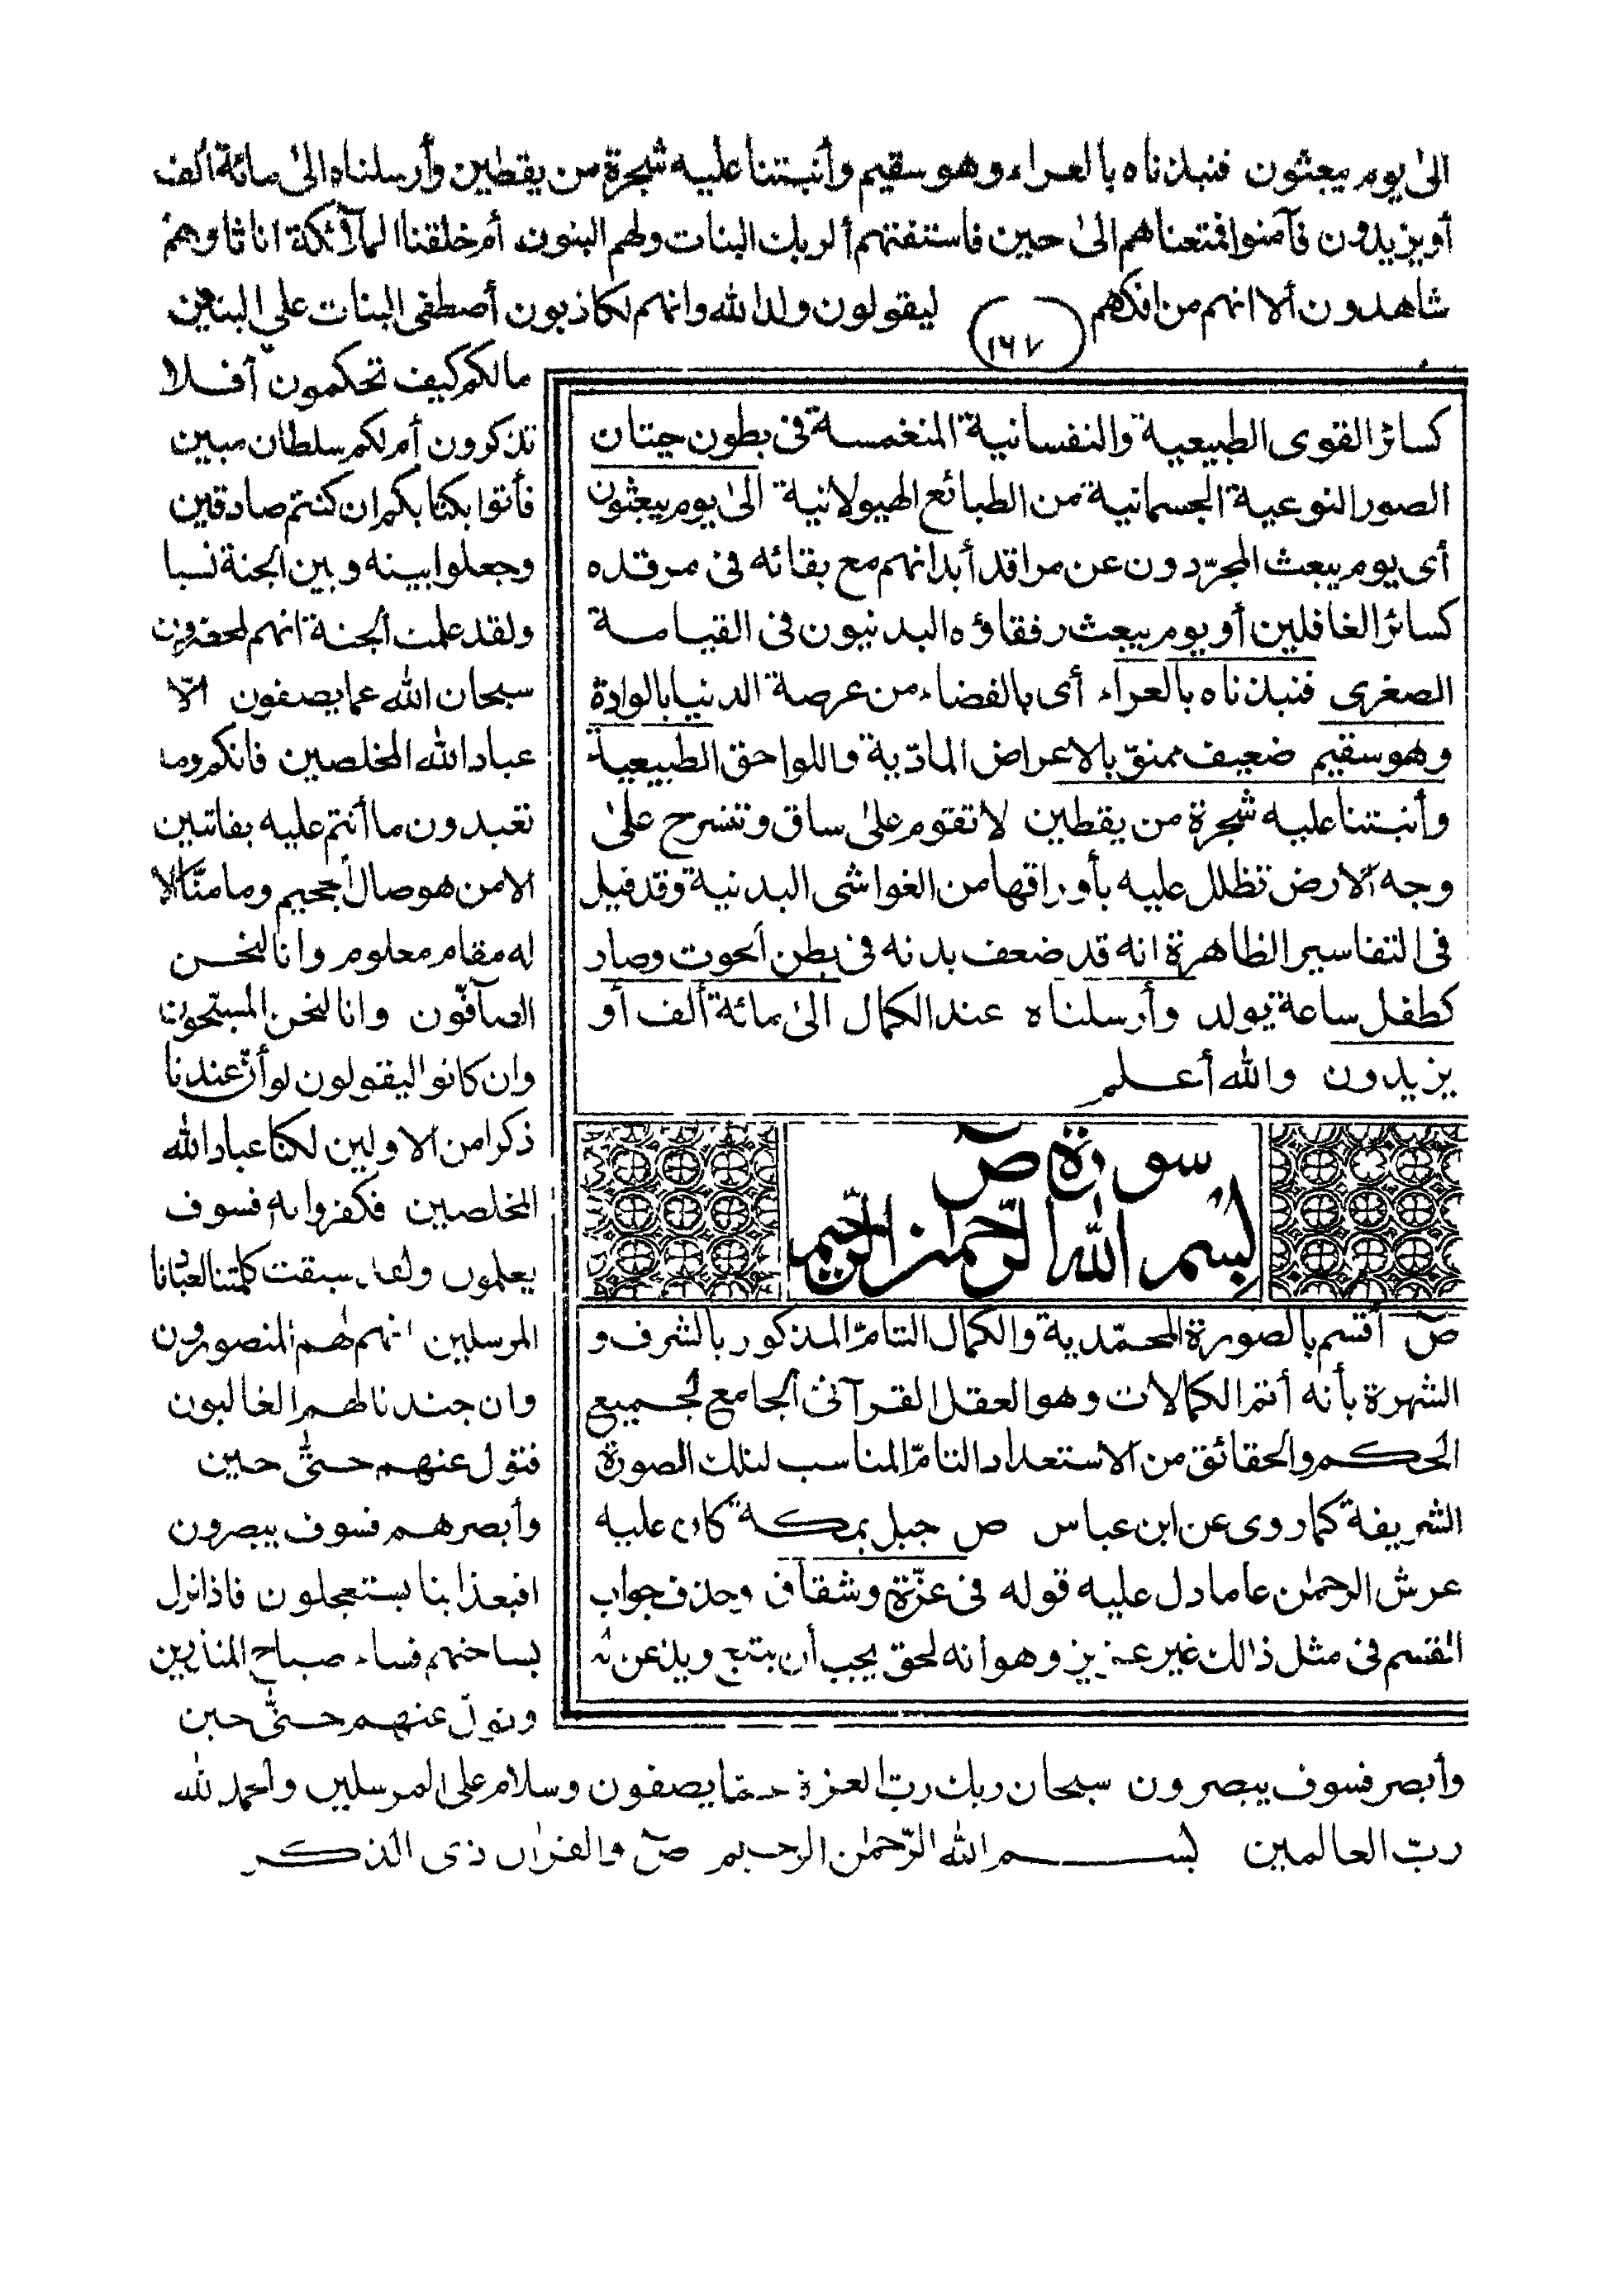 الى يوم يبعثون فنبذناه بالعراء وهو سقيم وأنبتنا عليه شجرة من يقطين وأرسلناه الى مائة ألف
أو يزيدون فآمنوا فمتعناهم الى حين فاستفتهم ألربك البنات ولهم البنون أم خلقنا الملآئكة اناثا وهم
شاهدون ألا انهم من افكهم ليقولون ولد الله وانهم لكاذبون أصطفى البنات على البنين
١٦٧
مالكم كيف تحكمون أفلا
تذكرون أم لكم سلطان مبين
فأتوا بكتابكم ان كنتم صادقين
وجعلوا بينه وبين الجنة نسبا
ولقد علمت الجنة انهم لمحضرون
سبحان الله عما يصفون الّا
عباد الله المخلصين فانكم وما
تعبدون ما أنتم عليه بفاتنين
الا من هو صال الجحيم وما منّا الا
له مقام معلوم وانا لنحن
الصآفّون وانا لنحن المسبّحون
وان كانوا ليقولون لو أنّ عندنا
ذكرا من الاولين لكنّا عباد الله
المخلصين فكفروا به فسوف
يعلمون ولقد سبقت كلمتنا لعبادنا
المرسلين انهم لهم المنصورون
وان جندنا لهم الغالبون
فتول عنهم حتّى حين
وأبصرهم فسوف يبصرون
افبعذابنا يستعجلون فاذا نزل
بساحتهم فساء صباح المنذرين
وتولّ عنهم حتّى حين
كسائر القوى الطبيعية والنفسانية المنغمسة فى بطون حيتان
الصور النوعية الجسمانية من الطبائع الهيولانية الى يوم يبعثون
أى يوم يبعث المجرّدون عن مراقد أبدانهم مع بقائه فى مرقده
كسائر الغافلين أو يوم يبعث رفقاؤه البدنيون فى القيامة
الصغرى فنبذناه بالعراء أى بالفضاء من عرصة الدنيا بالولادة
وهو سقيم ضعيف ممنوّ بالاعراض المادّية واللواحق الطبيعية
وأنبتنا عليه شجرة من يقطين لا تقوم على ساق وتنسرح على
وجه الارض تظلل عليه بأوراقها من الغواشى البدنية وقد قيل
فى التفاسير الظاهرة انه قد ضعف بدنه فى بطن الحوت وصار
كطفل ساعة يولد وأرسلناه عند الكمال الى مائة ألف أو
يزيدون والله أعلم
سورة ص
بسم الله الرّحمن الرّحيم
صٓ أقسم بالصورة المحمّدية والكمال التامّ المذكور بالشرف و
الشهرة بأنه أتم الكمالات وهو العقل القرآنى الجامع لجميع
الحكم والحقائق من الاستعداد التامّ المناسب لتلك الصورة
الشريفة كما روى عن ابن عباس ص جبل بمكة كان عليه
عرش الرحمن عاما دل عليه قوله فى عزّة وشقاق وحذف جواب
القسم فى مثل ذالك غير عزيز وهو انه لحق يجب أن يتبع ويذعن له
وأبصر فسوف يبصرون سبحان ربك ربّ العزة عمّا يصفون وسلام على المرسلين والحمد لله
ربّ العالمين بسم الله الرّحمن الرحيم صٓ والقرآن ذى الذكر